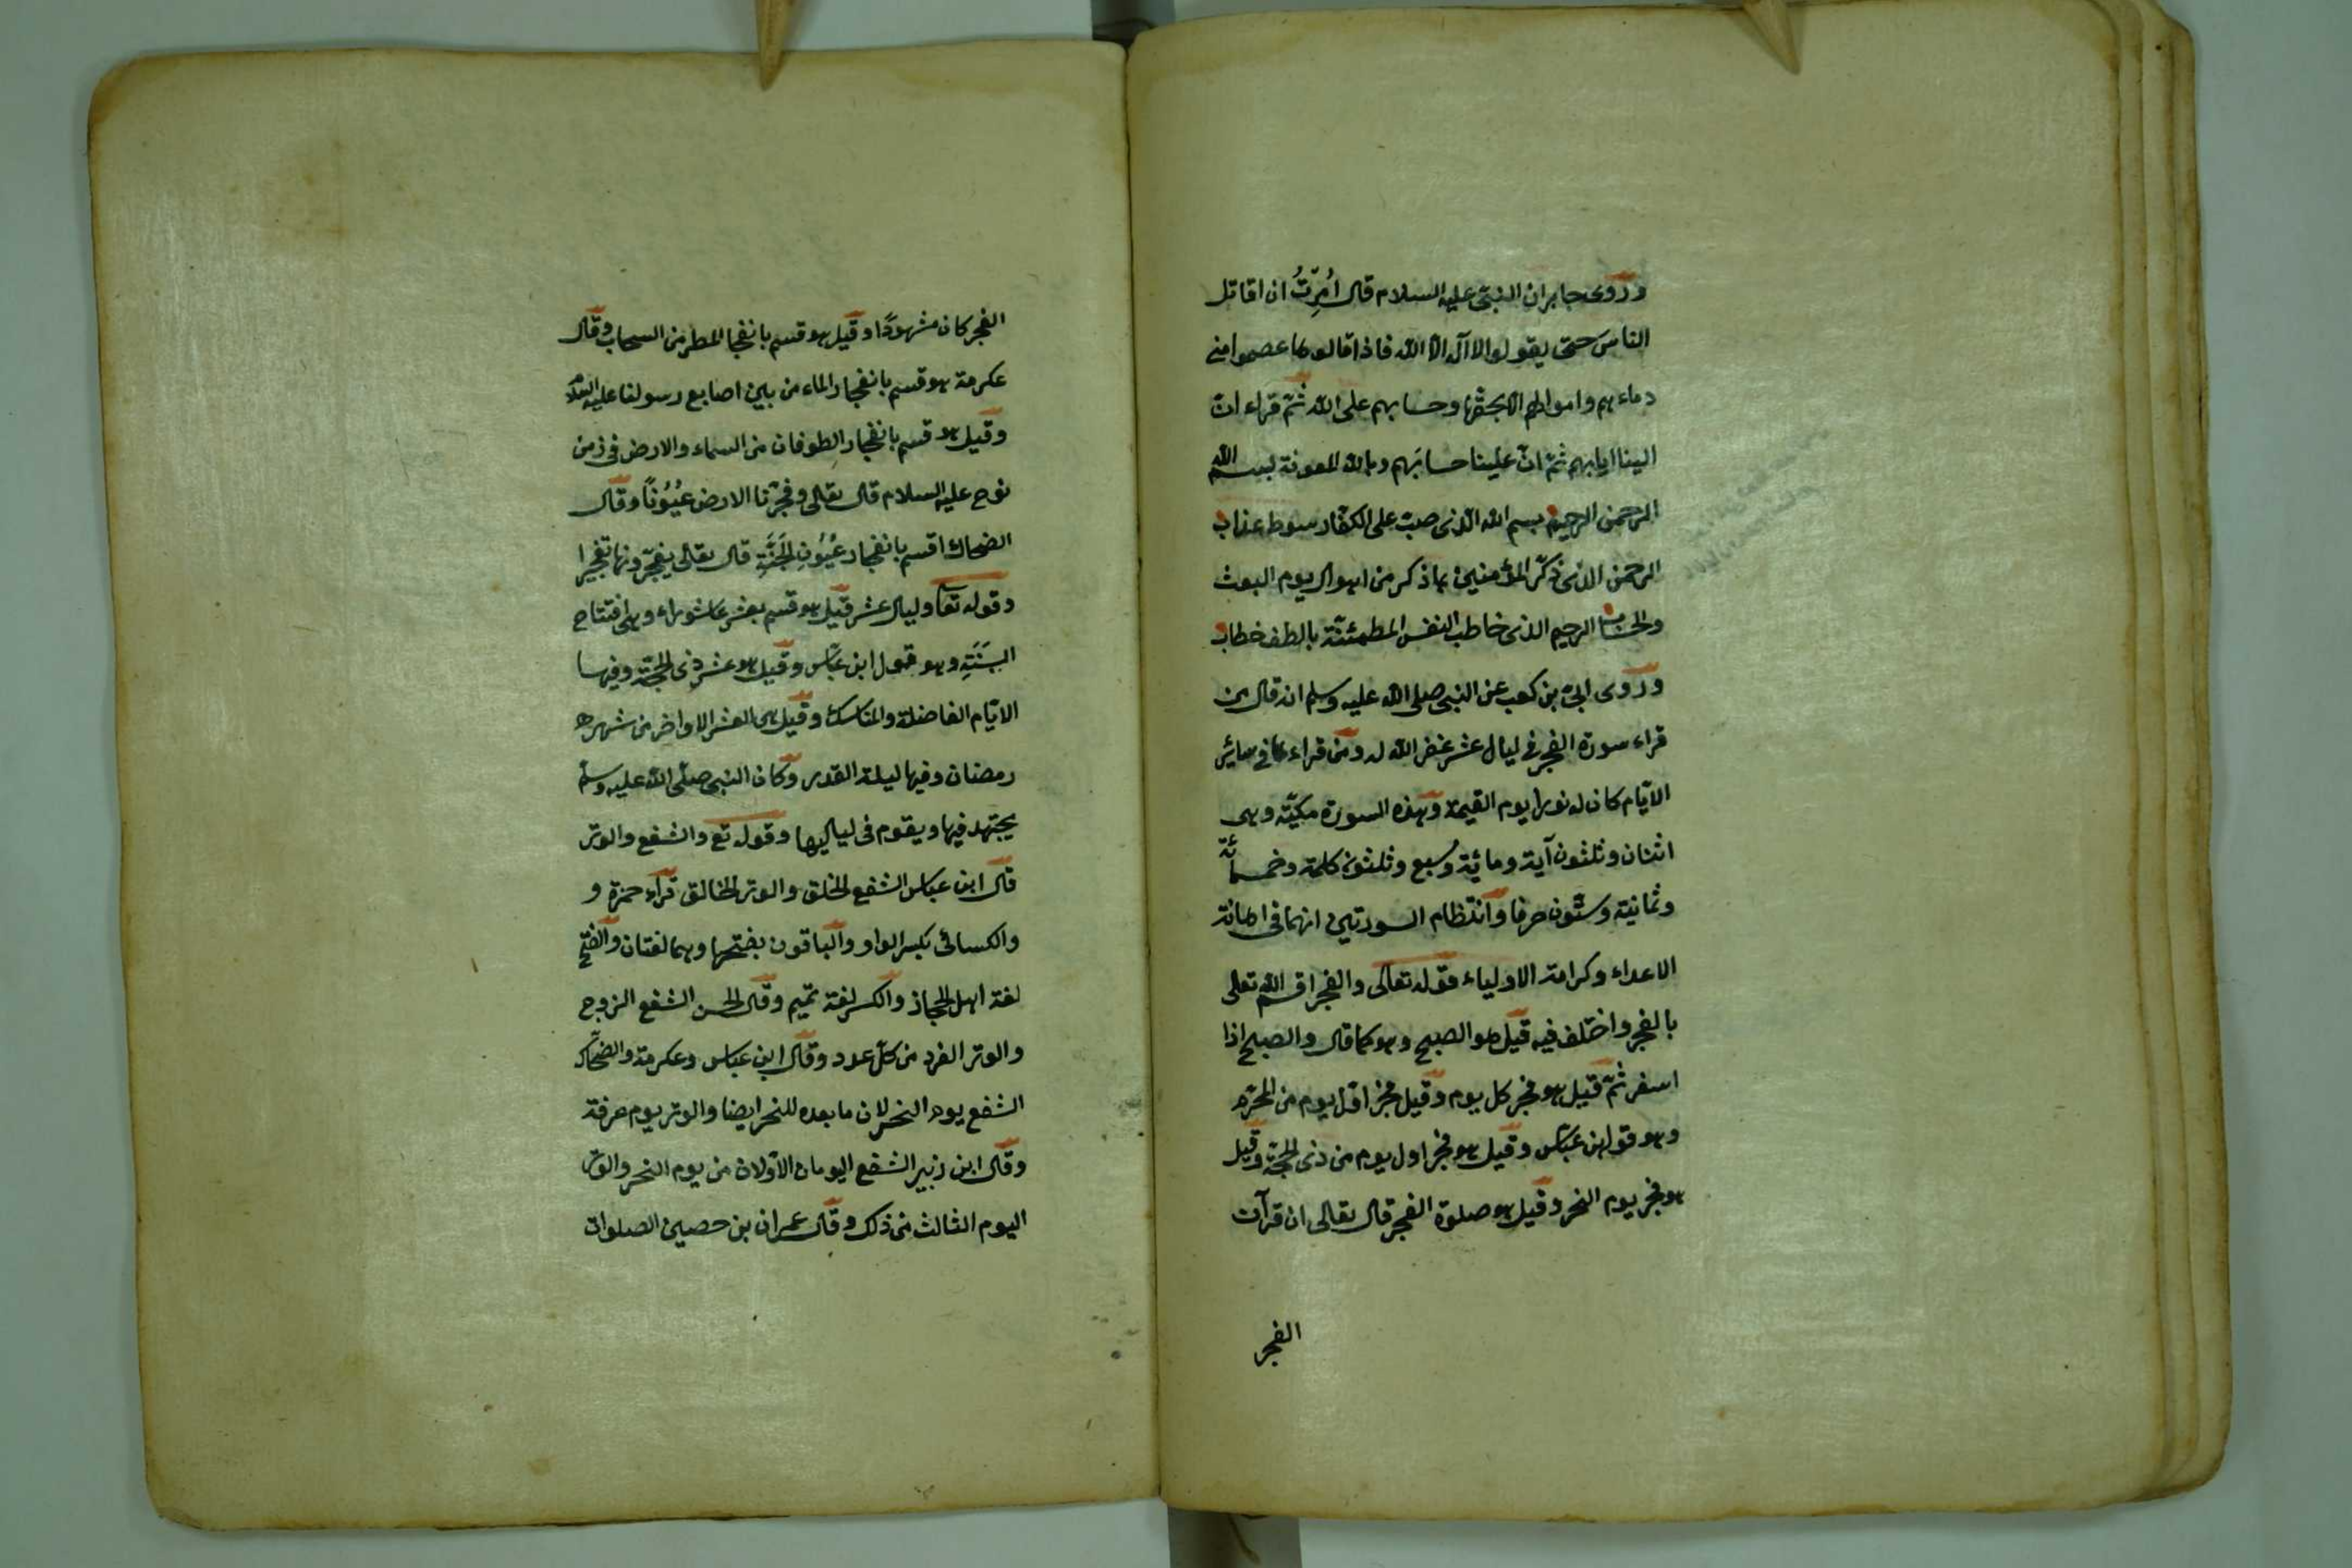 وروى جابر ان النبى عليه السلام قال اُمِرْتُ ان اقاتل
الناس حتى يقولوا لا آله الا الله فاذا قالوها عصموا منى
دماءهم واموالهم الا بحقها وحسابهم على الله ثم قراء ان
الينا ايابهم ثم ان علينا حسابَهم وبالله المعونة بسم الله
الرحمن الرحيم بسم الله الذى صبّ على الكفار سوط عذاب
الرحمن الذى ذكّر المؤمنين بما ذكر من اهوال يوم البعث
والحساب الرحيم الذى خاطب النفس المطمئنّة بالطف خطاب
وروى ابىّ بن كعب عن النبى صلى الله عليه وسلم انه قال من
قراء سورة الفجر فى ليال عشر غفر الله له ومن قراءها فى سائر
الايّام كان له نورا يوم القيمة وهذه السورة مكيّة وهى
اثنان وثلثون آية ومائة وسبع وثلثون كلمة وخمسمائة
وثمانية وستّون حرفا وانتظام السورتين انهما فى اهانة
الاعداء وكرامة الاولياء قوله تعالى والفجر اقسم الله تعلى
بالفجر واختلف فيه قيل هو الصبح وهو كما قال والصبح اذا
اسفر ثمّ قيل هو فجر كل يوم وقيل فجر اوّل يوم من المحرّم
وهو قول ابن عبّاس وقيل هو فجر اول يوم من ذى الحجّة وقيل
هو فجر يوم النحر وقيل هو صلوة الفجر قال تعالى ان قرآن
الفجر
الفجر كان مشهودًا وقيل هو قسم بانفجا المطر من السحاب وقال
عكرمة هو قسم بانفجار الماء من بين اصابع رسولنا عليه السلام
وقيل هو قسم بانفجار الطوفان من السماء والارض فى زمن
نوح عليه السلام قال تعالى وفجّرنا الارض عُيُوْنًا وقال
الضحاك اقسم بانفجار عُيُوْنِ الجَنَّةِ قال تعالى يفجّرونها تفجيرا
وقوله تعا وليال عشر قيل هو قسم بعشر عاشوراء وهى افتتاح
السَنَةِ وهو قول ابن عبّاس وقيل هو عشر ذى الحجّة وفيها
الايّام الفاضلة والمناسك وقيل هى العشر الاواخر من شهر
رمضان وفيها ليلة القدر وكان النبى صلّى الله عليه وسلّم
يجتهد فيها ويقوم فى لياليها وقوله تع والشفع والوتر
قال ابن عباس الشفع الخلق والوتر الخالق قراء حمزة و
والكسائى بكسر الواو والباقون بفتحها وهما لغتان والفتح
لغة اهل الحجاز والكسر لغة تميم وقال الحسن الشفع الزوج
والوتر الفرد من كلّ عدد وقال ابن عباس وعكرمة والضحّاك
الشفع يوم النحر لان ما بعده للنحر ايضا والوتر يوم عرفة
وقال ابن زبير الشفع اليومان الاوّلان من يوم النحر والوتر
اليوم الثالث من ذلك وقال عمران بن حصين الصلوات